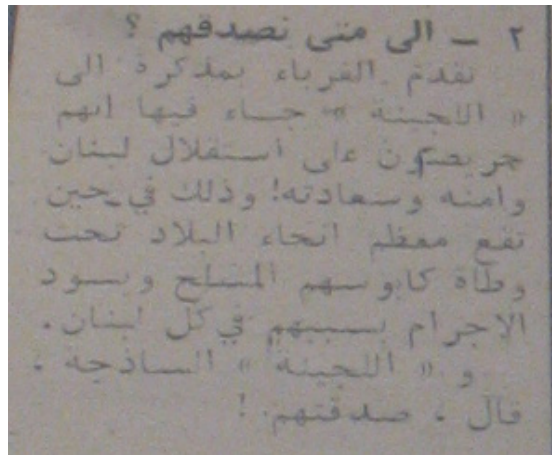 ٢ – الى متى نصدقهم ؟
تقدم الغرباء بمذكرة الى
« اللجينة » جاء فيها انهم
حريصون على استقلال لبنان
وامنه وسعادته! وذلك في حين
تقع معظم انحاء البلاد تحت
وطأة كابوسهم المسلح ويسود
الاجرام بسببهم في كل لبنان.
و « اللجينة » الساذجة ،
قال ، صدقتهم !